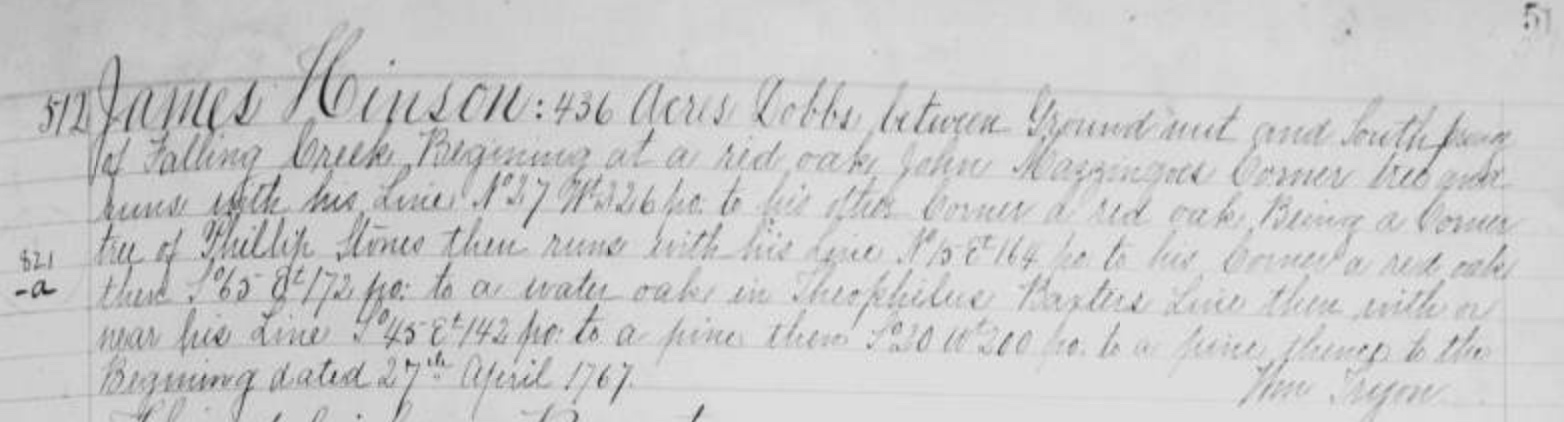 51
512 James Hinson: 436 Acres Dobbs between Ground nut and South prong
of Falling Creek Begining at a red oak John Mazzingoes Corner tree and
runs with his Line No 27 Wt 326 po. to his other Corner a red oak Being a Corner
tree of Phillip Stones then runs with his Line No 15 Et 164 po. to his Corner a red oak
821
-a
then So 65 Et 172 po: to a water oak in Theophilus Baxters Line then with or
near his Line So 45 Et 142 po: to a pine then So 20 Wt 200 po. to a pine thence to the
Begining dated 27th April 1767.
Wm Tryon